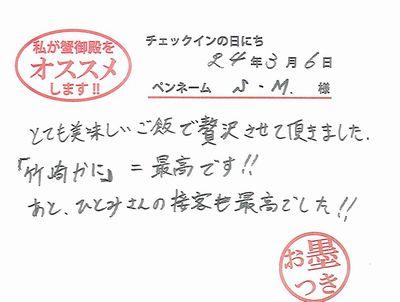 私が蟹御殿を
オススメ
します!!
チェックインの日にち
24年3月6日
ペンネーム S・M. 様
とても美味しいご飯で贅沢させて頂きました.
「竹崎かに」=最高です!!
あと、ひとみさんの接客も最高でした!!
お墨
つき